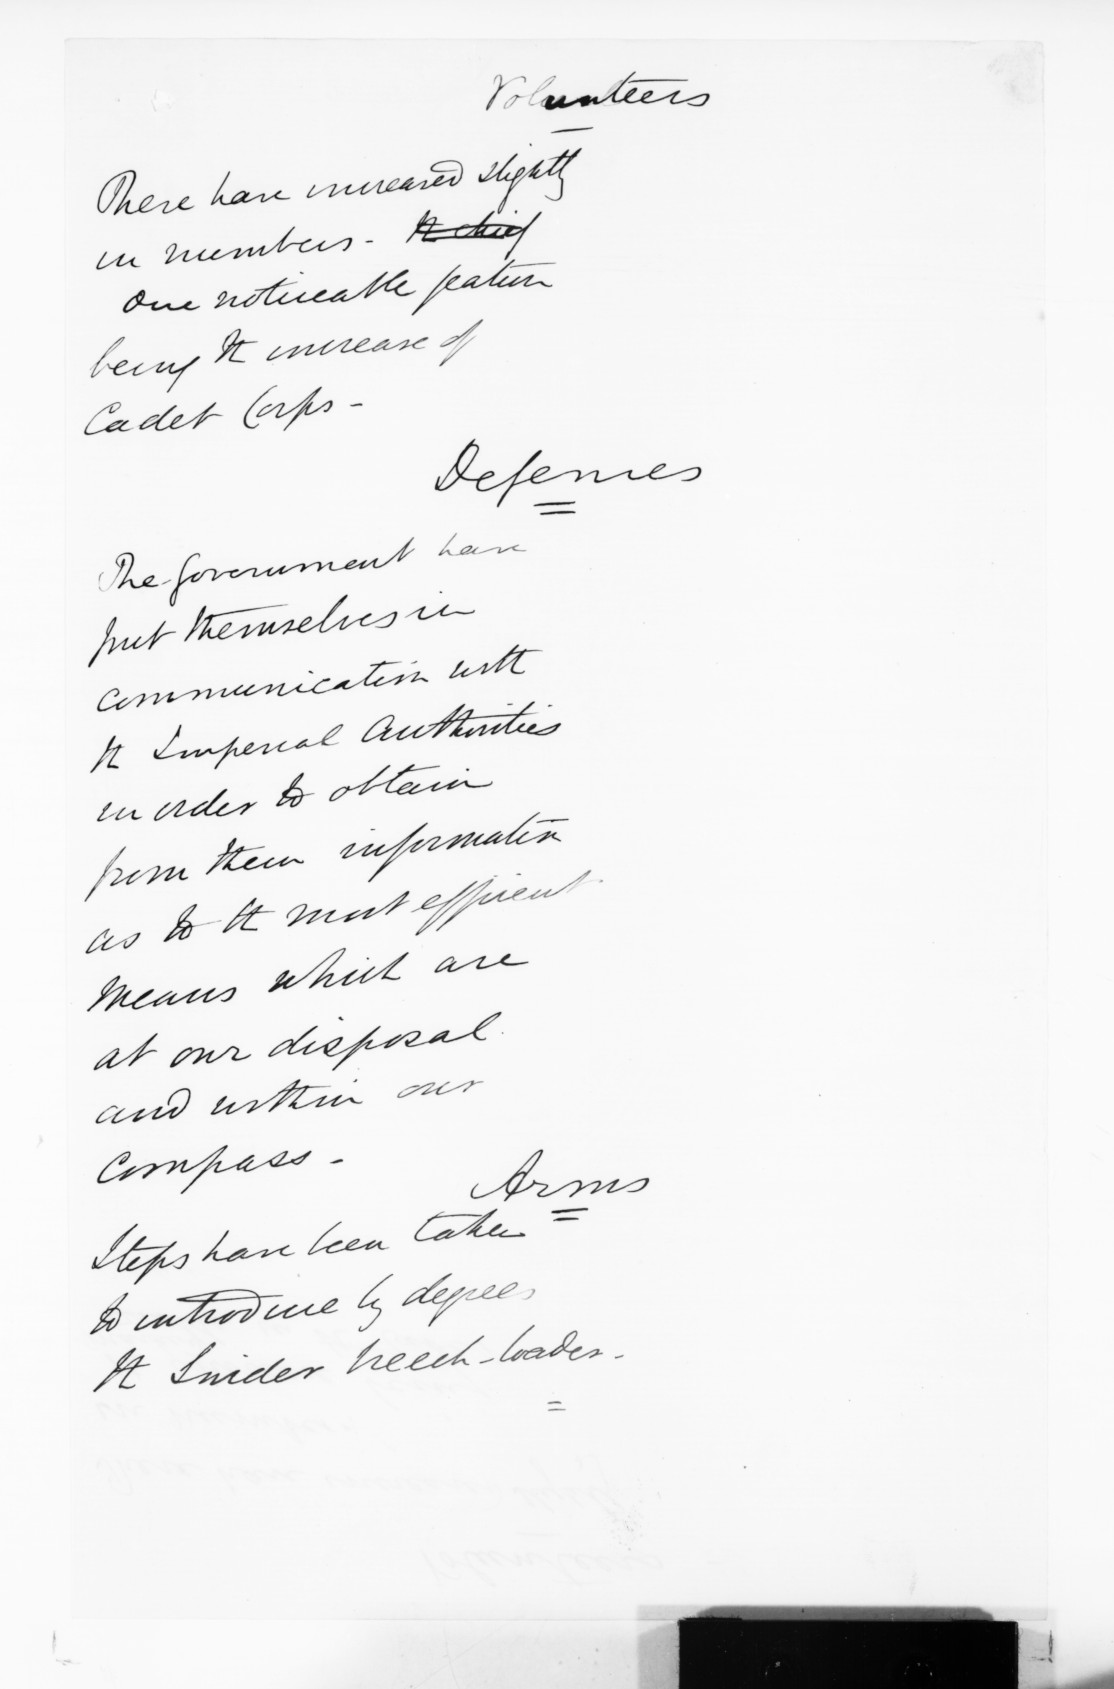 Volunteers
There have increased slightly
in numbers - ~~the chief~~
One noticeable feature
being the increase of
Cadet Corps -
Defences
The Government have
put themselves in
communication with
the Imperial Authorities
in order to obtain
from them information
as to the most efficient
means which are
at our disposal
and within our
compass -
Arms
Steps have been taken
to introduce by degrees
the Snider breech-loader -